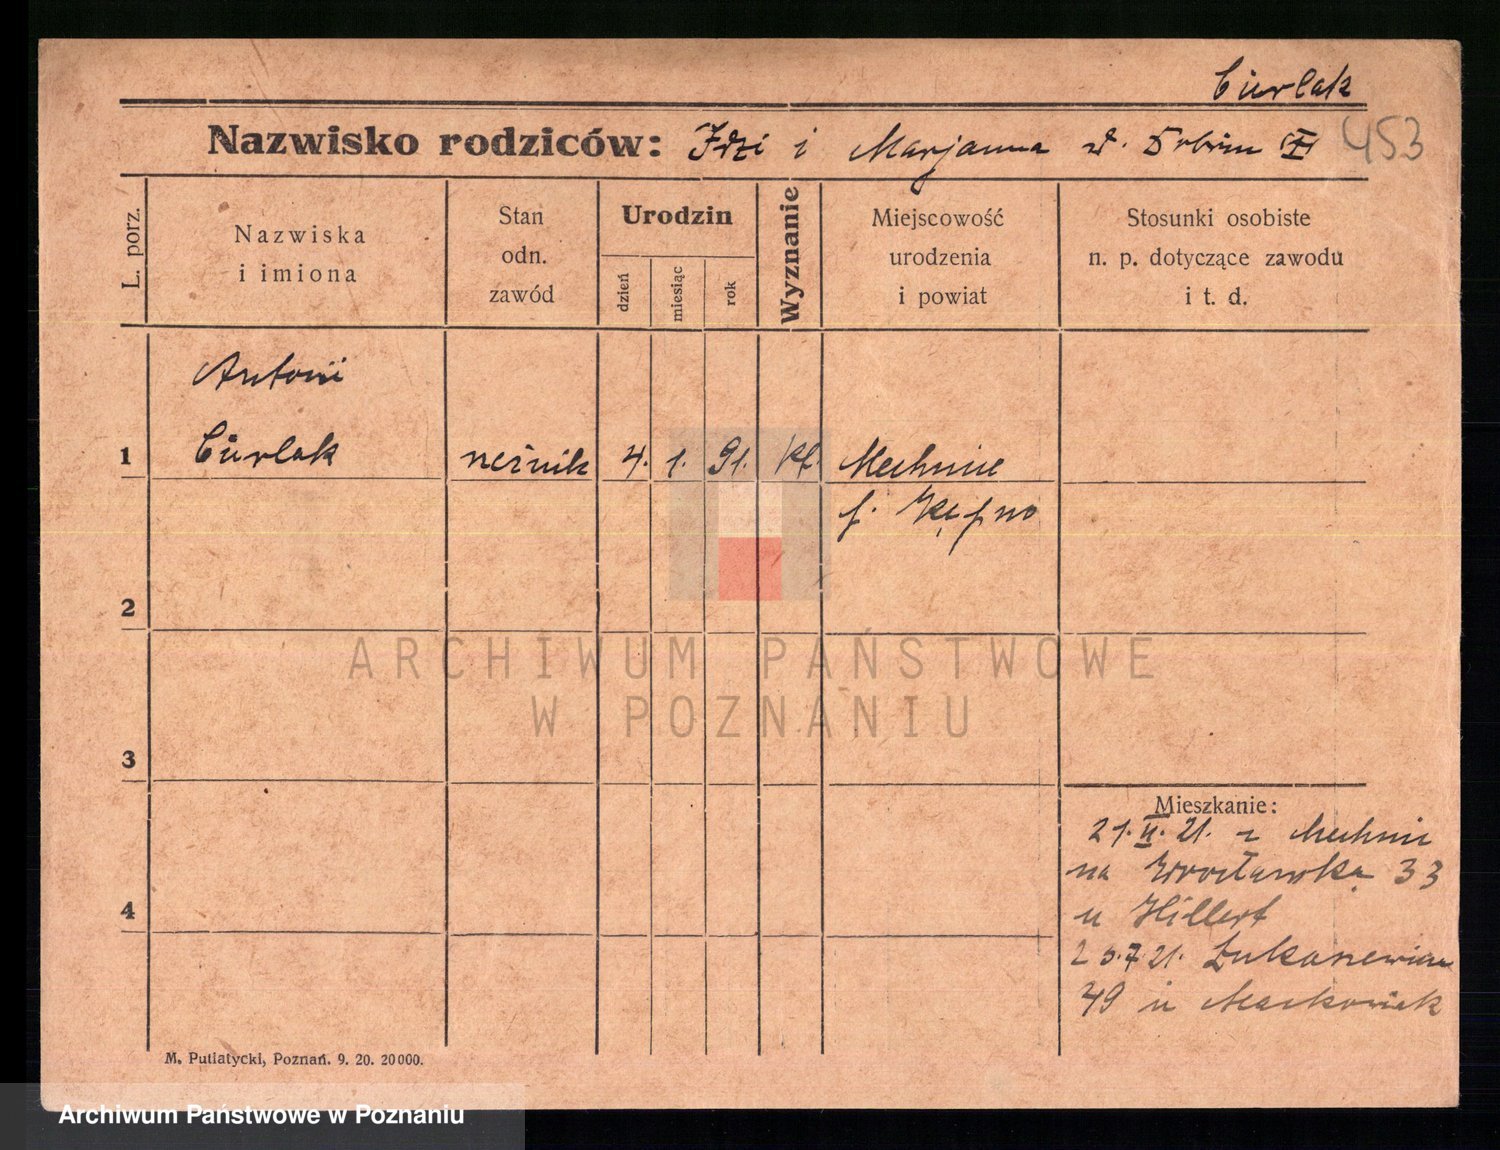 Ciurlak
Nazwisko rodziców: Idzi i Marjanna d.
453
L. porz.
Nazwiska
i imiona
Stan
odn.
zawód
Urodzin
dzień
miesiąc
rok
Wyznanie
Miejscowość
urodzenia
i powiat
Stosunki osobiste
n. p. dotyczące zawodu
i t. d.
Antoni
1 Ciurlak 4. 1. 91. kt. Mechnice
p. Kępno
2
3
4
Mieszkanie:
21. II. 21. z Mechnic
na Wrocławską 33
u Hillert
7. 21.
49 u Markowiak
M. Putiatycki, Poznań. 9. 20. 20000.
ARCHIWUM PAŃSTWOWE
W POZNANIU
Archiwum Państwowe w Poznaniu